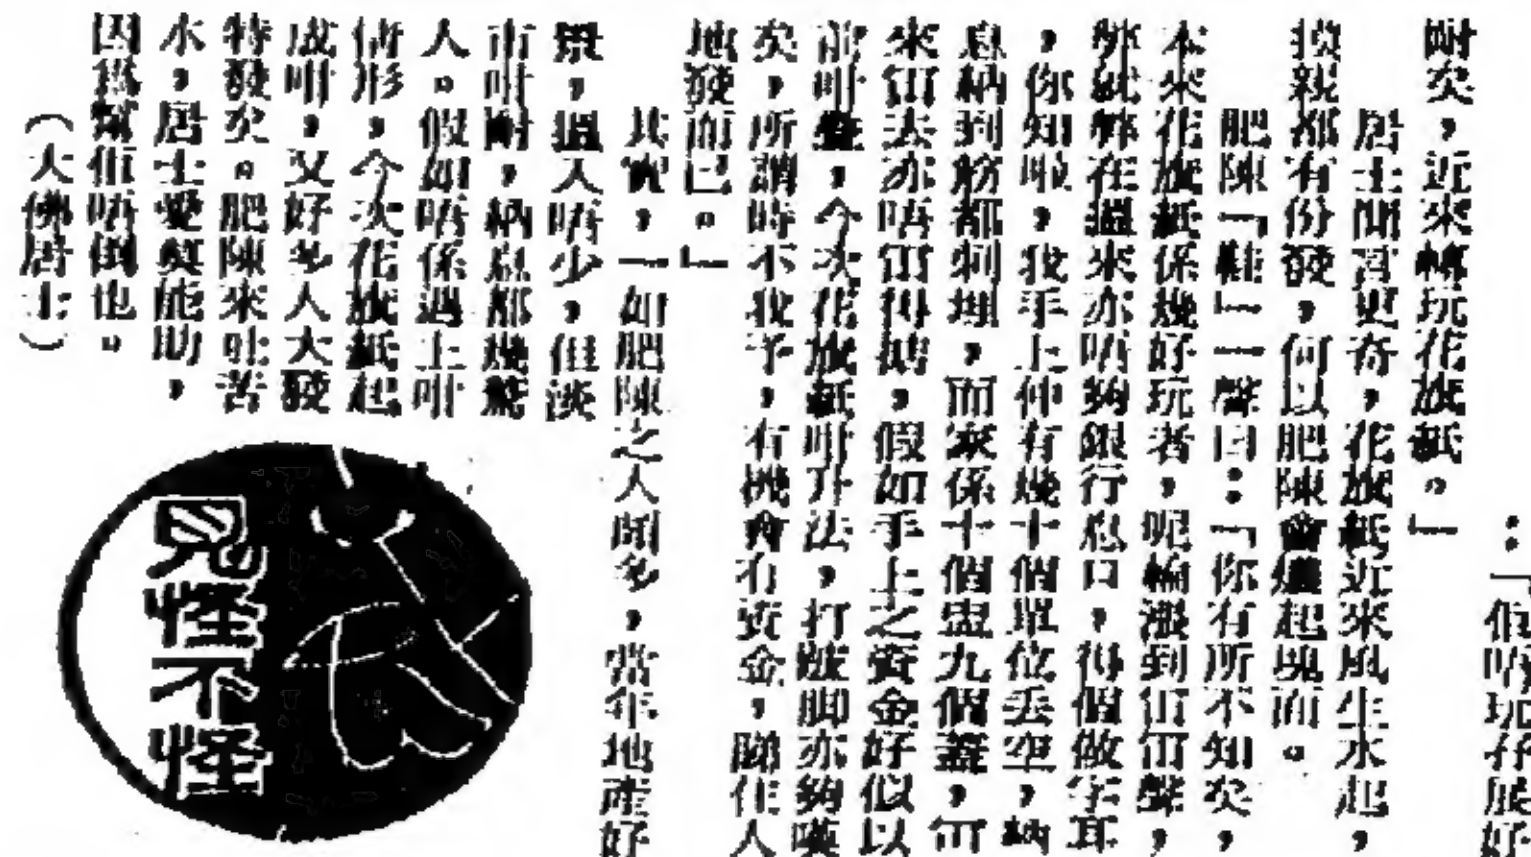 ：「佢唔玩孖展好
耐矣，近來轉玩花旗紙。」
居士聞言更奇，花旗紙近來風生水起，
揸親都有份發，何以肥陳會爆起塊面。
肥陳「鞋」一聲曰：「你有所不知矣，
本來花旗紙係幾好玩者，呢輪漲到冚冚聲，
弊就弊在揾來亦唔夠銀行息口，得個做字耳
，你知啦，我手上仲有幾十個單位丟空，納
息納到肋都刺埋，而家係十個盅九個蓋，冚
來冚去亦唔冚得掂，假如手上之資金好似以
前咁疊，今次花旗紙咁升法，打跛脚亦夠嘆
矣，所謂時不我予，有機會冇資金，睇住人
地發而已。」
其實，一如肥陳之人頗多，當年地產好
景，揾入唔少，但淡
市咁耐，納息都幾驚
人。假如唔係遇上咁
情形，今次花旗紙起
成咁，又好多人大發
特發矣。肥陳來吐苦
水，居士愛莫能助，
因爲幫佢唔倒也。
（大佛居士）
見怪不怪